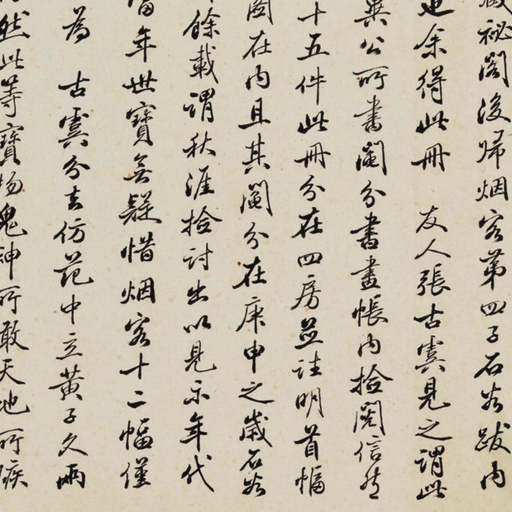 藏祕閣後歸烟客第四子石谷跋内
也余得此册 友人張古雲見之謂此
奕公所書鬮分書畫帳内撿閱信有
十五件此册分在四房並註明首幅
圖在内且其鬮分在庚申之歲石谷
餘載謂秋涯撿討出以見示年代
當年世寶無疑惜烟客十二幅僅
為 古雲分去仿范中立黄子久兩
然此等寶物鬼神所敢天地所嫉